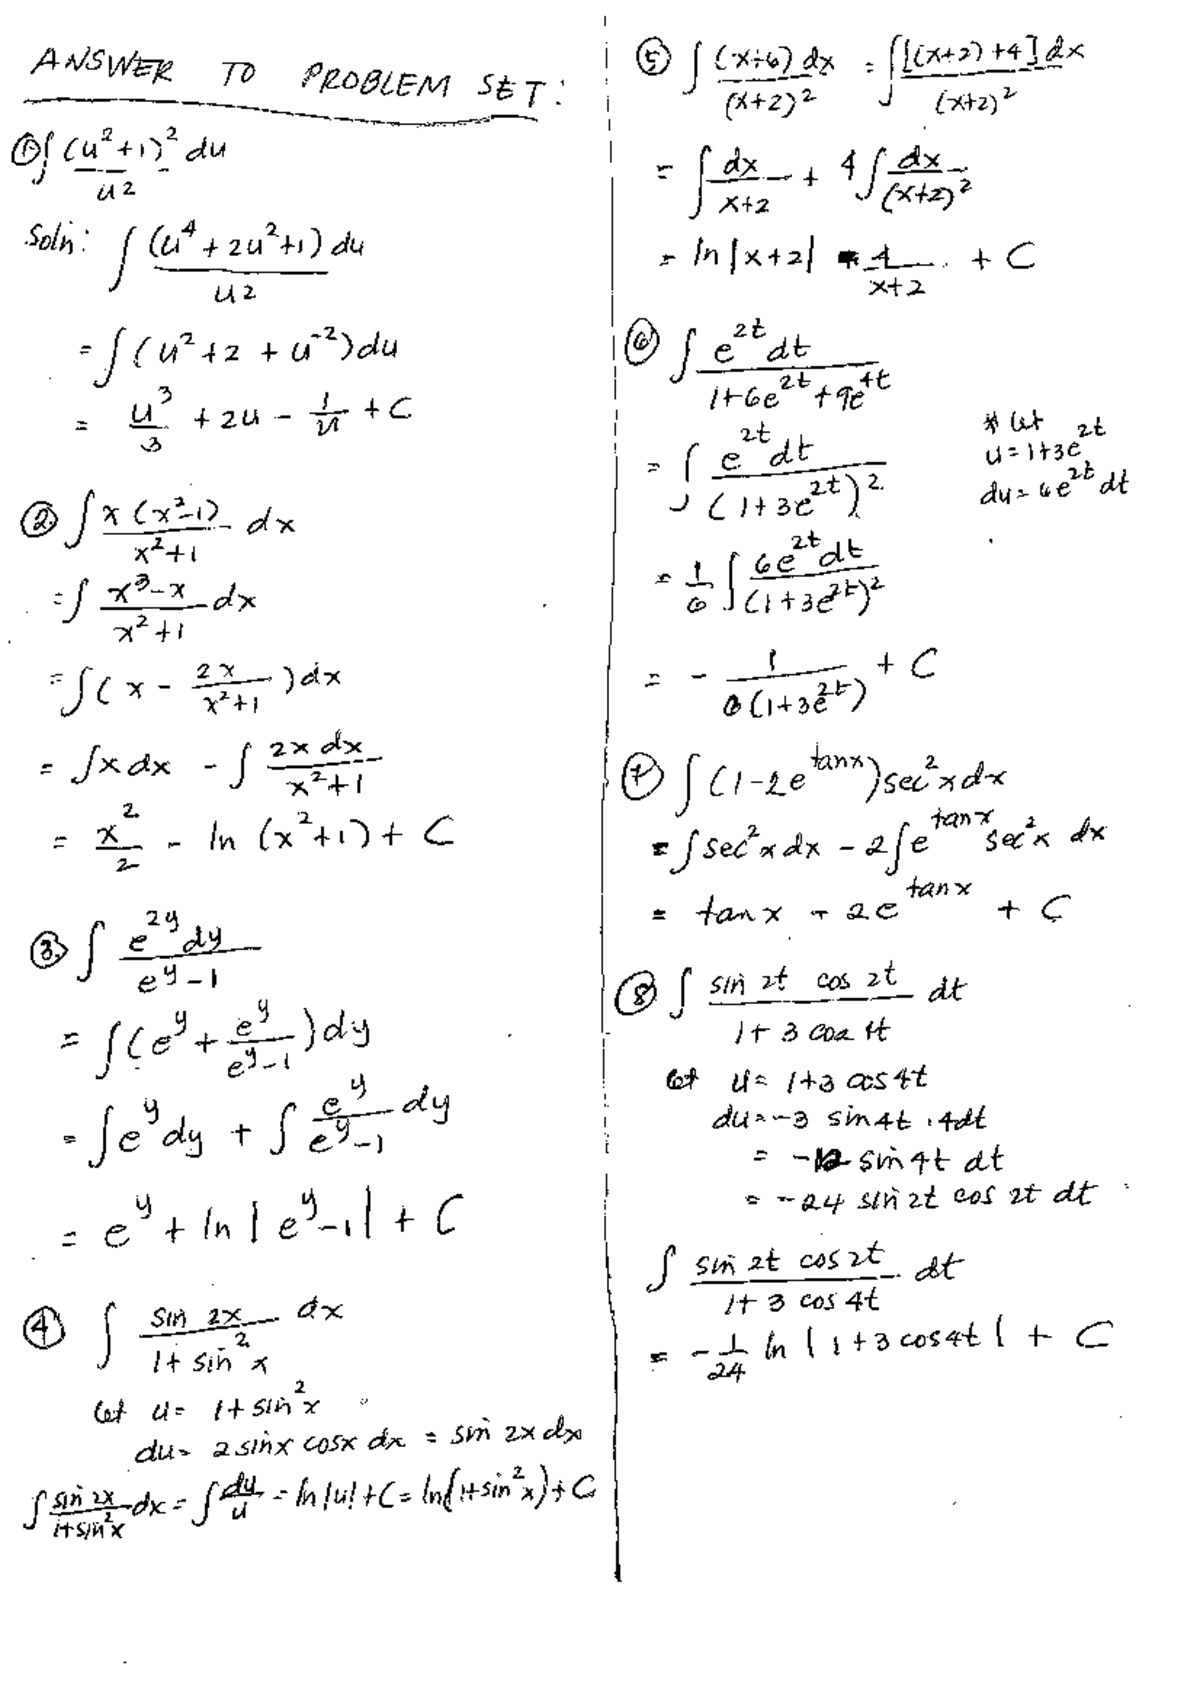 ANSWER TO PROBLEM SET:
① ∫ (u²+1)² du / u²
Soln: ∫ (u⁴ + 2u² + 1) du / u²
= ∫ (u² + 2 + u⁻²) du
= u³/3 + 2u - 1/u + C
② ∫ x(x²-1)/(x²+1) dx
= ∫ (x³-x)/(x²+1) dx
= ∫ (x - 2x/(x²+1)) dx
= ∫ x dx - ∫ 2x dx/(x²+1)
= x²/2 - ln (x²+1) + C
③ ∫ e^{2y} dy/(e^y-1)
= ∫ (e^y + e^y/(e^y-1)) dy
= ∫ e^y dy + ∫ e^y/(e^y-1) dy
= e^y + ln |e^y-1| + C
④ ∫ sin 2x/(1+ sin²x) dx
let u = 1+ sin²x
du = 2 sinx cosx dx = sin 2x dx
∫ sin 2x/(1+sin²x) dx = ∫ du/u = ln |u| + C = ln(1+sin²x) + C
⑤ ∫ (x+6) dx/(x+2)² = ∫ [(x+2)+4] dx/(x+2)²
= ∫ dx/(x+2) + 4 ∫ dx/(x+2)²
= ln |x+2| - 4/(x+2) + C
⑥ ∫ e^{2t} dt/(1+6e^{2t}+9e^{4t})
= ∫ e^{2t} dt/(1+3e^{2t})²
* let
u = 1+3e^{2t}
du = 6e^{2t} dt
= 1/6 ∫ 6e^{2t} dt/(1+3e^{2t})²
= - 1/(6(1+3e^{2t})) + C
⑦ ∫ (1-2e^{tanx}) sec²x dx
= ∫ sec²x dx - 2 ∫ e^{tanx} sec²x dx
= tanx - 2e^{tanx} + C
⑧ ∫ sin 2t cos 2t/(1+ 3 cos 4t) dt
let u = 1+3 cos 4t
du = -3 sin 4t · 4dt
= -12 sin 4t dt
= -24 sin 2t cos 2t dt
∫ sin 2t cos 2t/(1+ 3 cos 4t) dt
= - 1/24 ln |1+3 cos 4t| + C